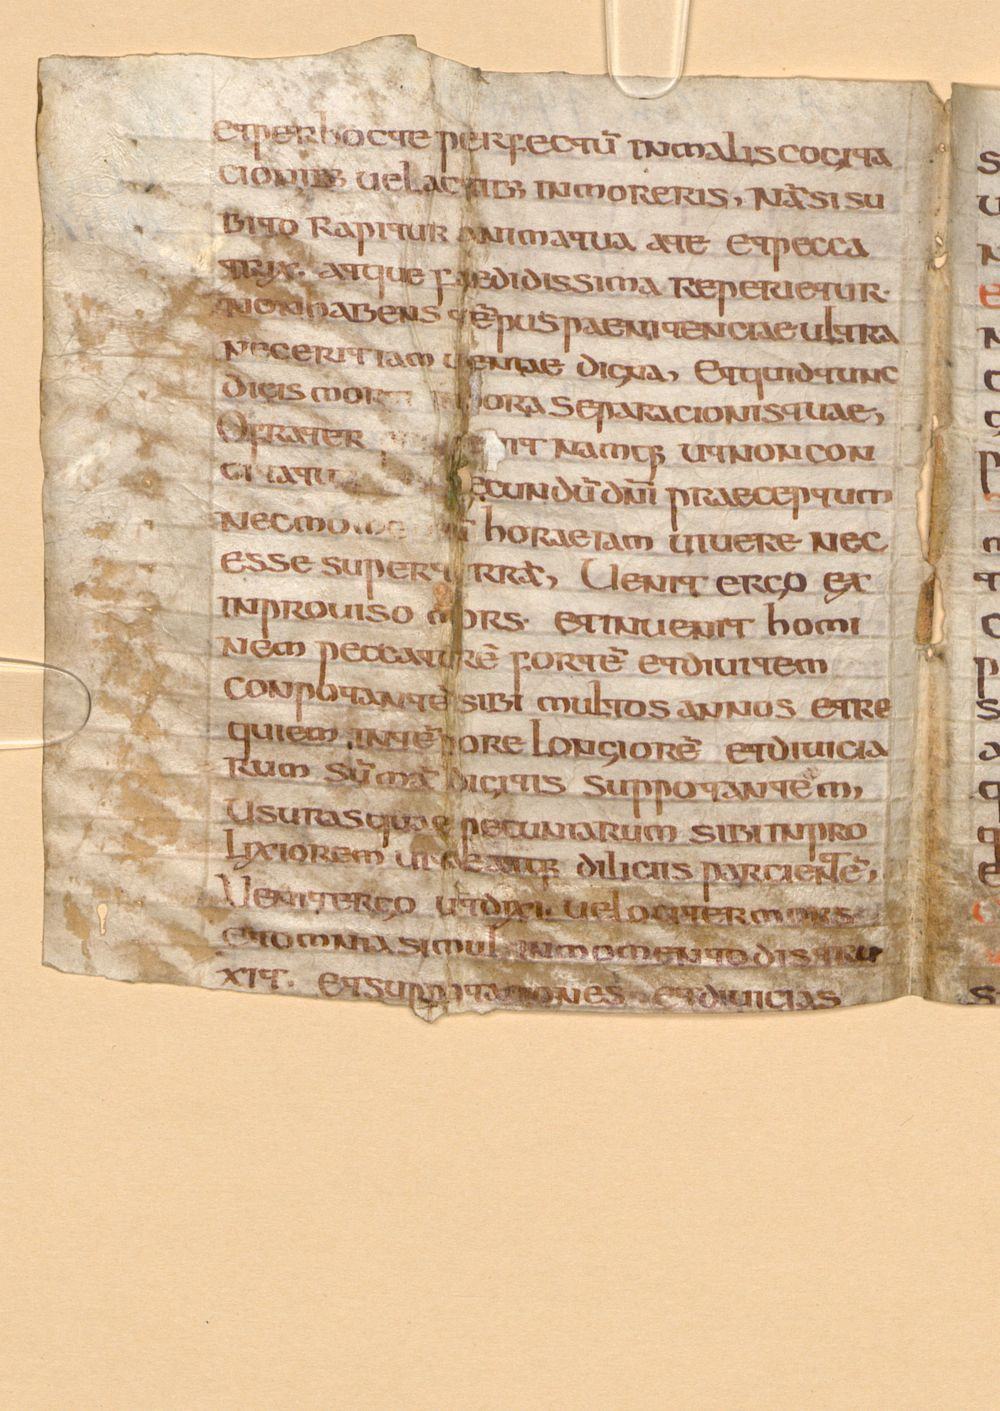 etper hocte perfectū inmalis cogita
cionibꝫ uel actibꝫ inmoreris, Nā si su
bito Rapitur anima tua ate etpecca
trix. atque foedidissima Reperietur.
non habens tēpus paenitenciae ultra
nec erit iam ueniae digna, Et quid tunc
dicis mort hora separacionis tuae,
O frater it namqꝫ ut non con
secundū dnī praeceptum
nec horae iam uiuere nec
esse super terrā, Uenit ergo ex
inprouiso mors. et inuenit homi
nem peccatorē fortē et diuitem
conpotantē sibi multos annos et re
quiem in tēpore longiorē et diuicia
rum sūmā digitis suppotantēm,
Usuras quae pecuniarum sibi in pro
lixiorem uitae atqꝫ diliciis parcientē,
Uenit ergo ut dixi. uelociter mors
et omnia simul in momento distru
xit. et suppotationes et diuicias